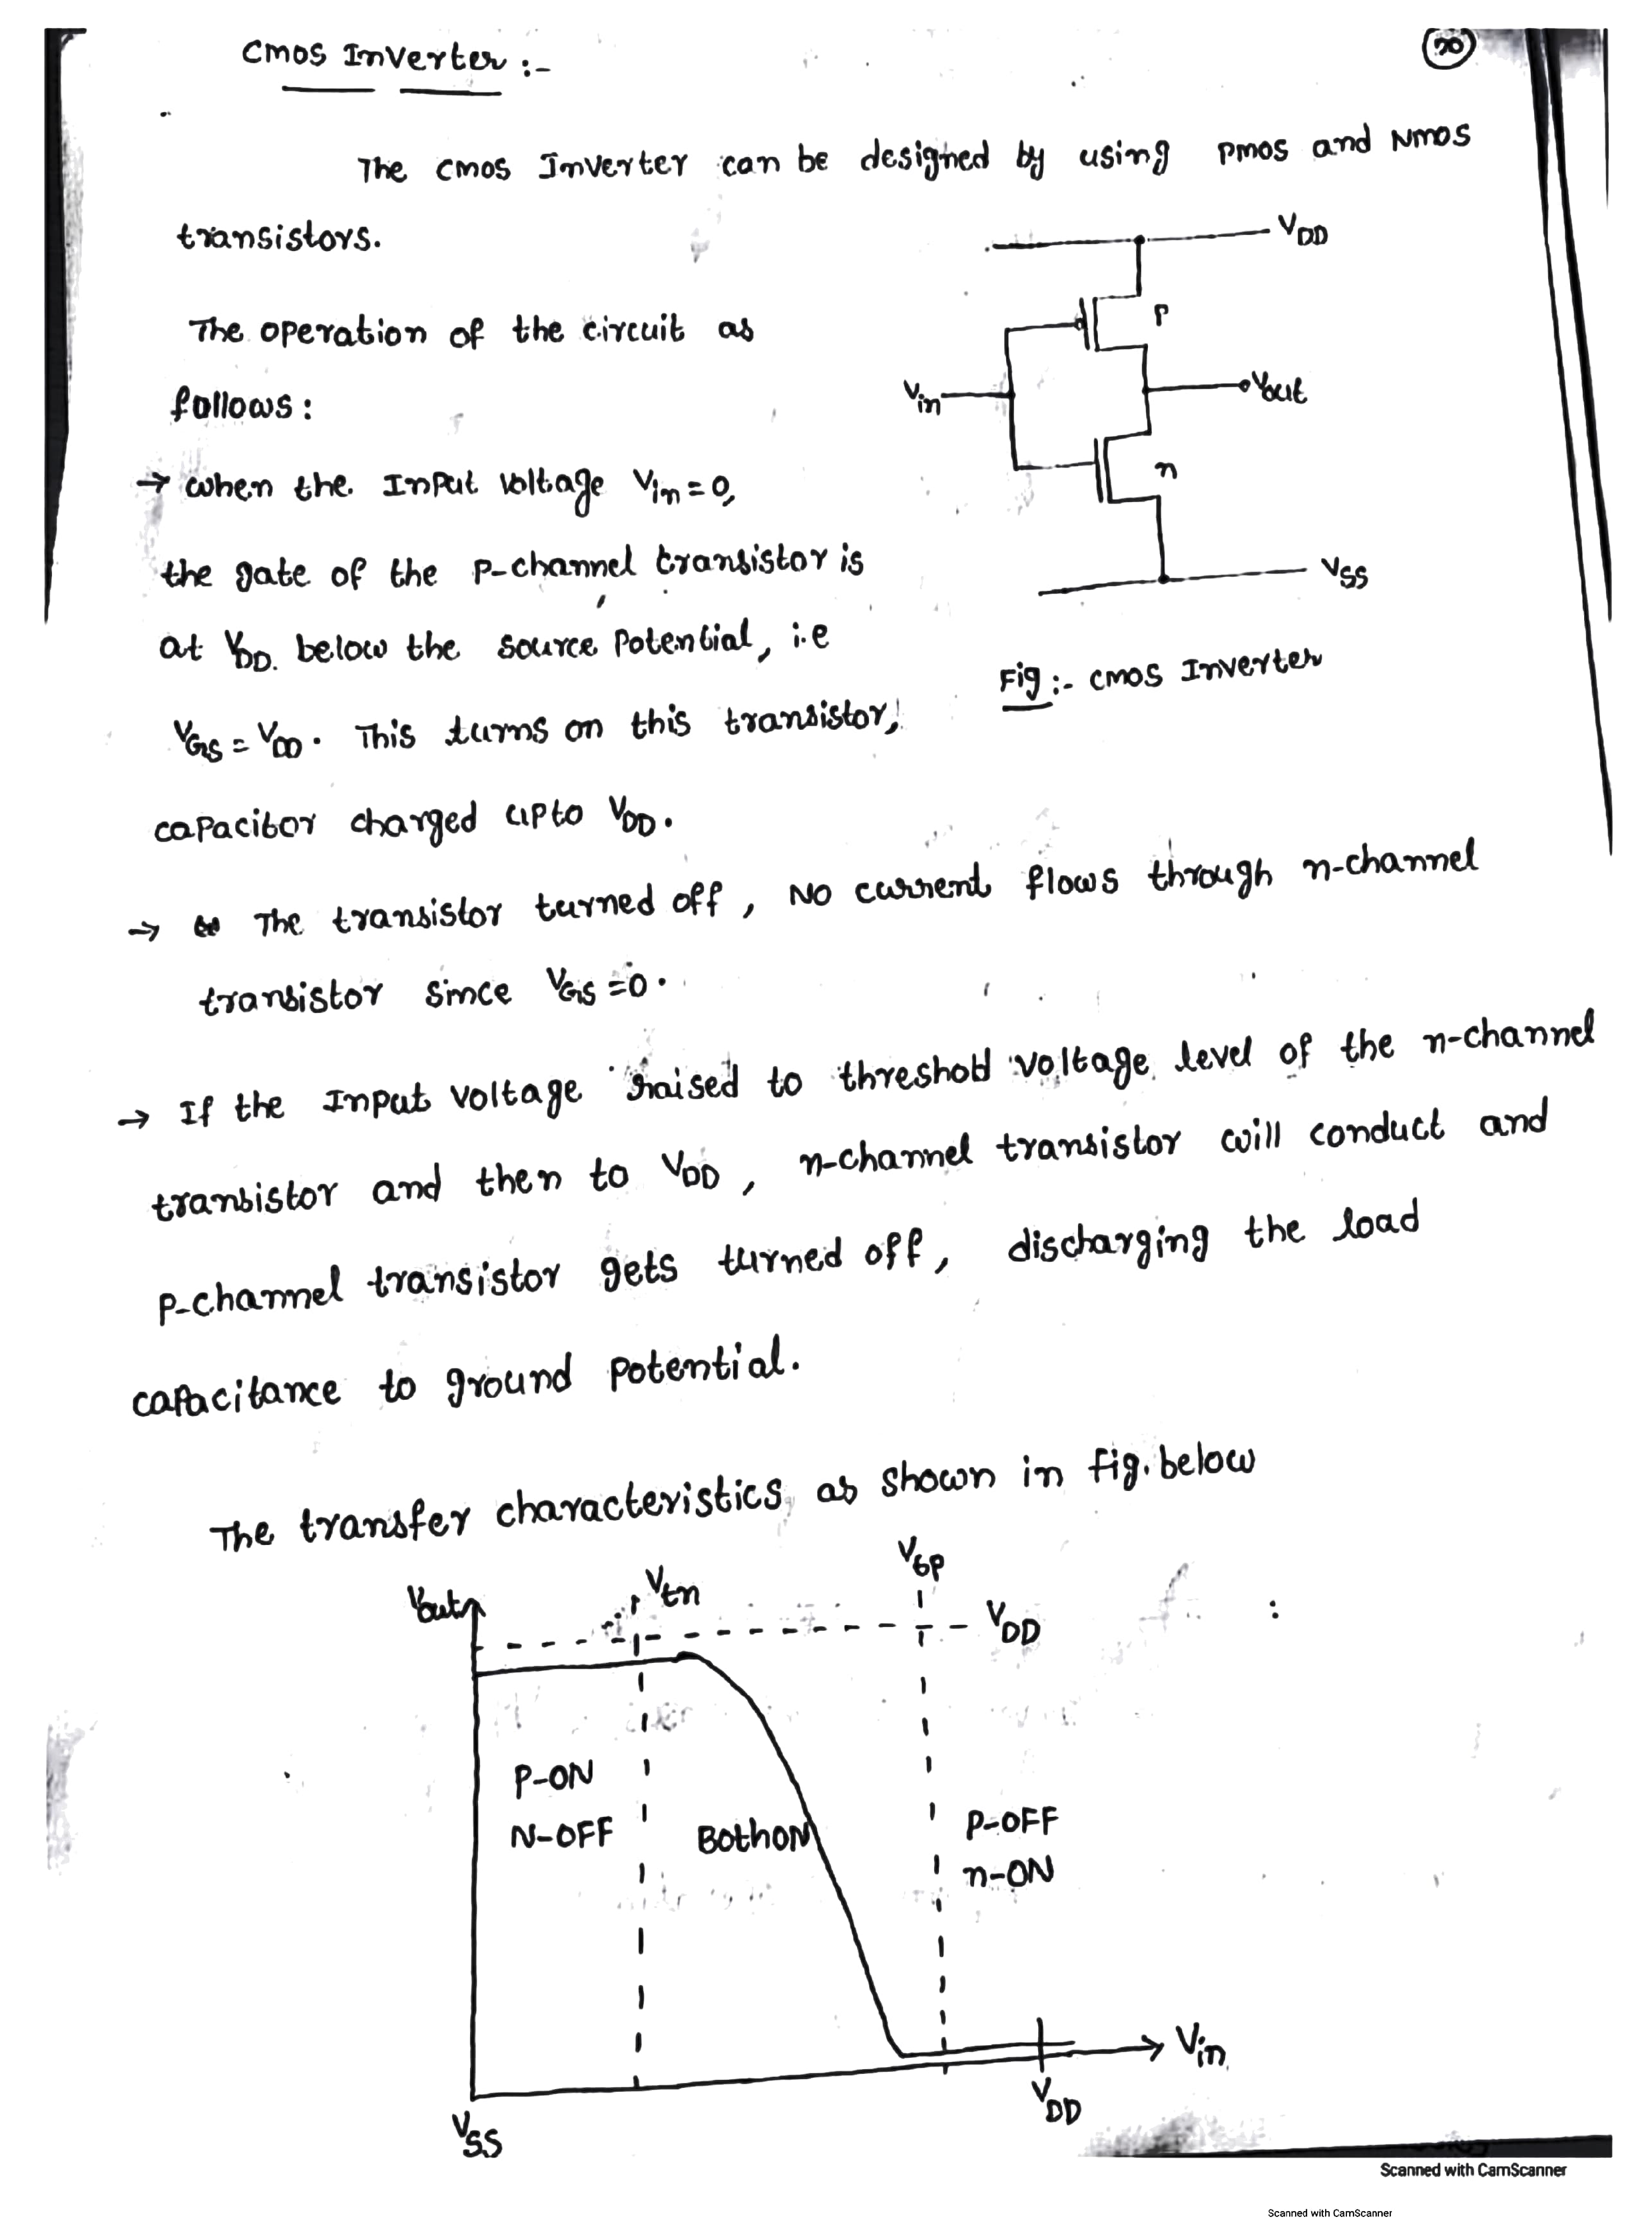 CMOS Inverter :-
20
The CMOS Inverter can be designed by using PMOS and NMOS
transistors.
VDD
P
Vin
Vout
n
VSS
Fig :- CMOS Inverter
The operation of the circuit as
follows :
→ when the Input voltage Vin = 0,
the gate of the p-channel transistor is
at VDD. below the source Potential, i.e
VGS = VDD. This turns on this transistor,
capacitor charged upto VDD.
→ The transistor turned off, No current flows through n-channel
transistor since VGS = 0.
→ If the Input voltage raised to threshold voltage level of the n-channel
transistor and then to VDD, n-channel transistor will conduct and
p-channel transistor gets turned off, discharging the load
capacitance to ground potential.
The transfer characteristics as shown in fig. below
Vout
Vtn
Vtp
VDD
P-ON
N-OFF
Both ON
P-OFF
n-ON
Vin
VDD
VSS
Scanned with CamScanner
Scanned with CamScanner